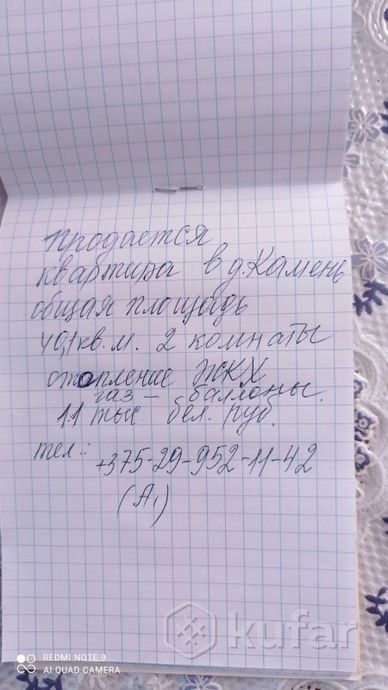 продается
квартира в д. Камень
общая площадь
40,1 кв. м. 2 комнаты
отопление ЖКХ
газ - баллоны.
11 тыс бел. руб.
тел.: +375-29-952-11-42
(А1)
kufar
REDMI NOTE 9
AI QUAD CAMERA